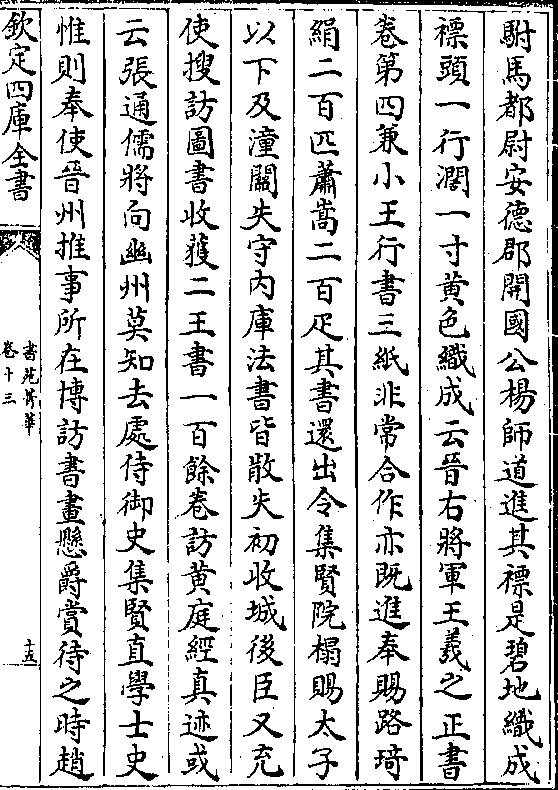 駙馬都尉安德郡開國公楊師道進其褾是碧地織成
褾頭一行濶一寸黃色織成云晉右將軍王羲之正書
卷第四兼小王行書三紙非常合作亦既進奉賜路琦
絹二百匹蕭嵩二百疋其書還出令集賢院榻賜太子
以下及潼關失守內庫法書皆散失初收城後臣又充
使搜訪圖書收獲二王書一百餘卷訪黃庭經真迹或
云張通儒將向幽州莫知去處侍御史集賢直學士史
惟則奉使晉州推事所在博訪書畫懸爵賞待之時趙
欽定四庫全書
書苑菁華
卷十三
十五